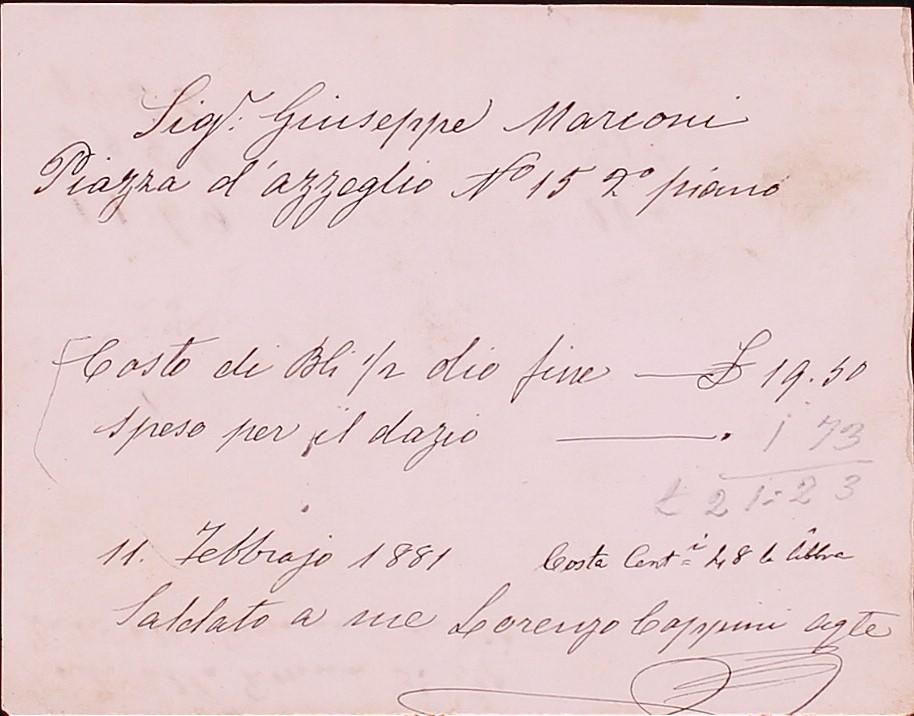 Sigr. Giuseppe Marconi
Piazza d'azzeglio No 15 2o piano
Costo di Bli 1/2 olio fine — £ 19.50
speso per il dazio — . 1 73
£ 21:23
11. Febbrajo 1881
Costa Cent.i 48 la libbra
Saldato a me Lorenzo Coppini agte